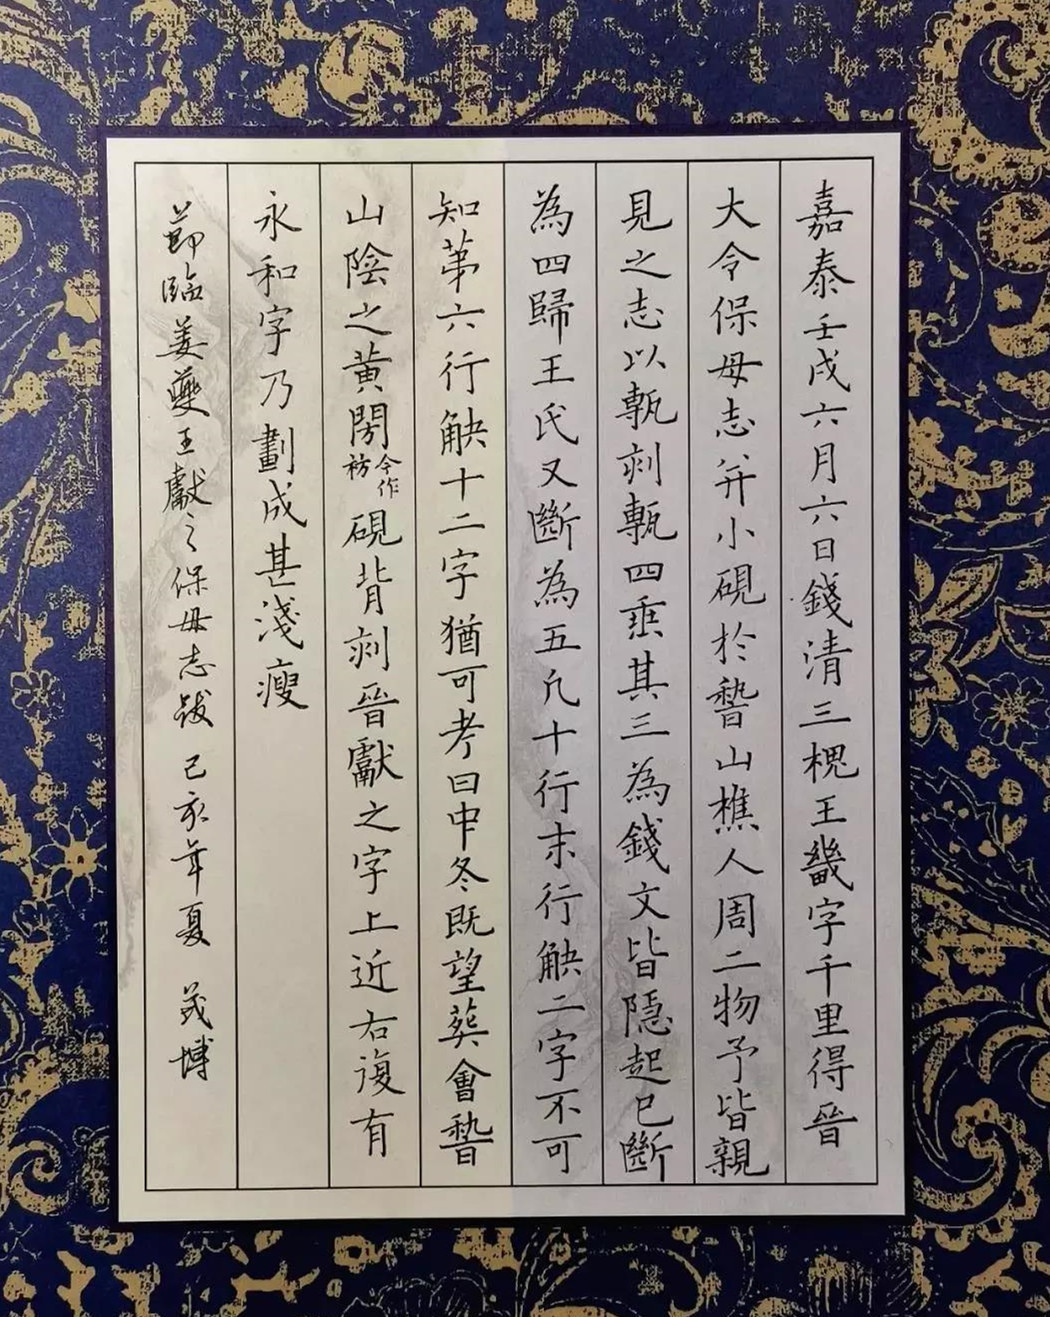 嘉泰壬戌六月六日錢清三槐王畿字千里得晉
大令保母志并小硯於嵆山樵人周二物予皆親
見之志以甎刻甎四垂其三為錢文皆隱起已斷
為四歸王氏又斷為五凡十行末行觖二字不可
知第六行觖十二字猶可考曰中冬既望葬會嵆
山陰之黃閍今作祊硯背刻晉獻之字上近右復有
永和字乃劃成甚淺瘦
節臨姜夔王獻之保母志跋己亥年夏 茂博